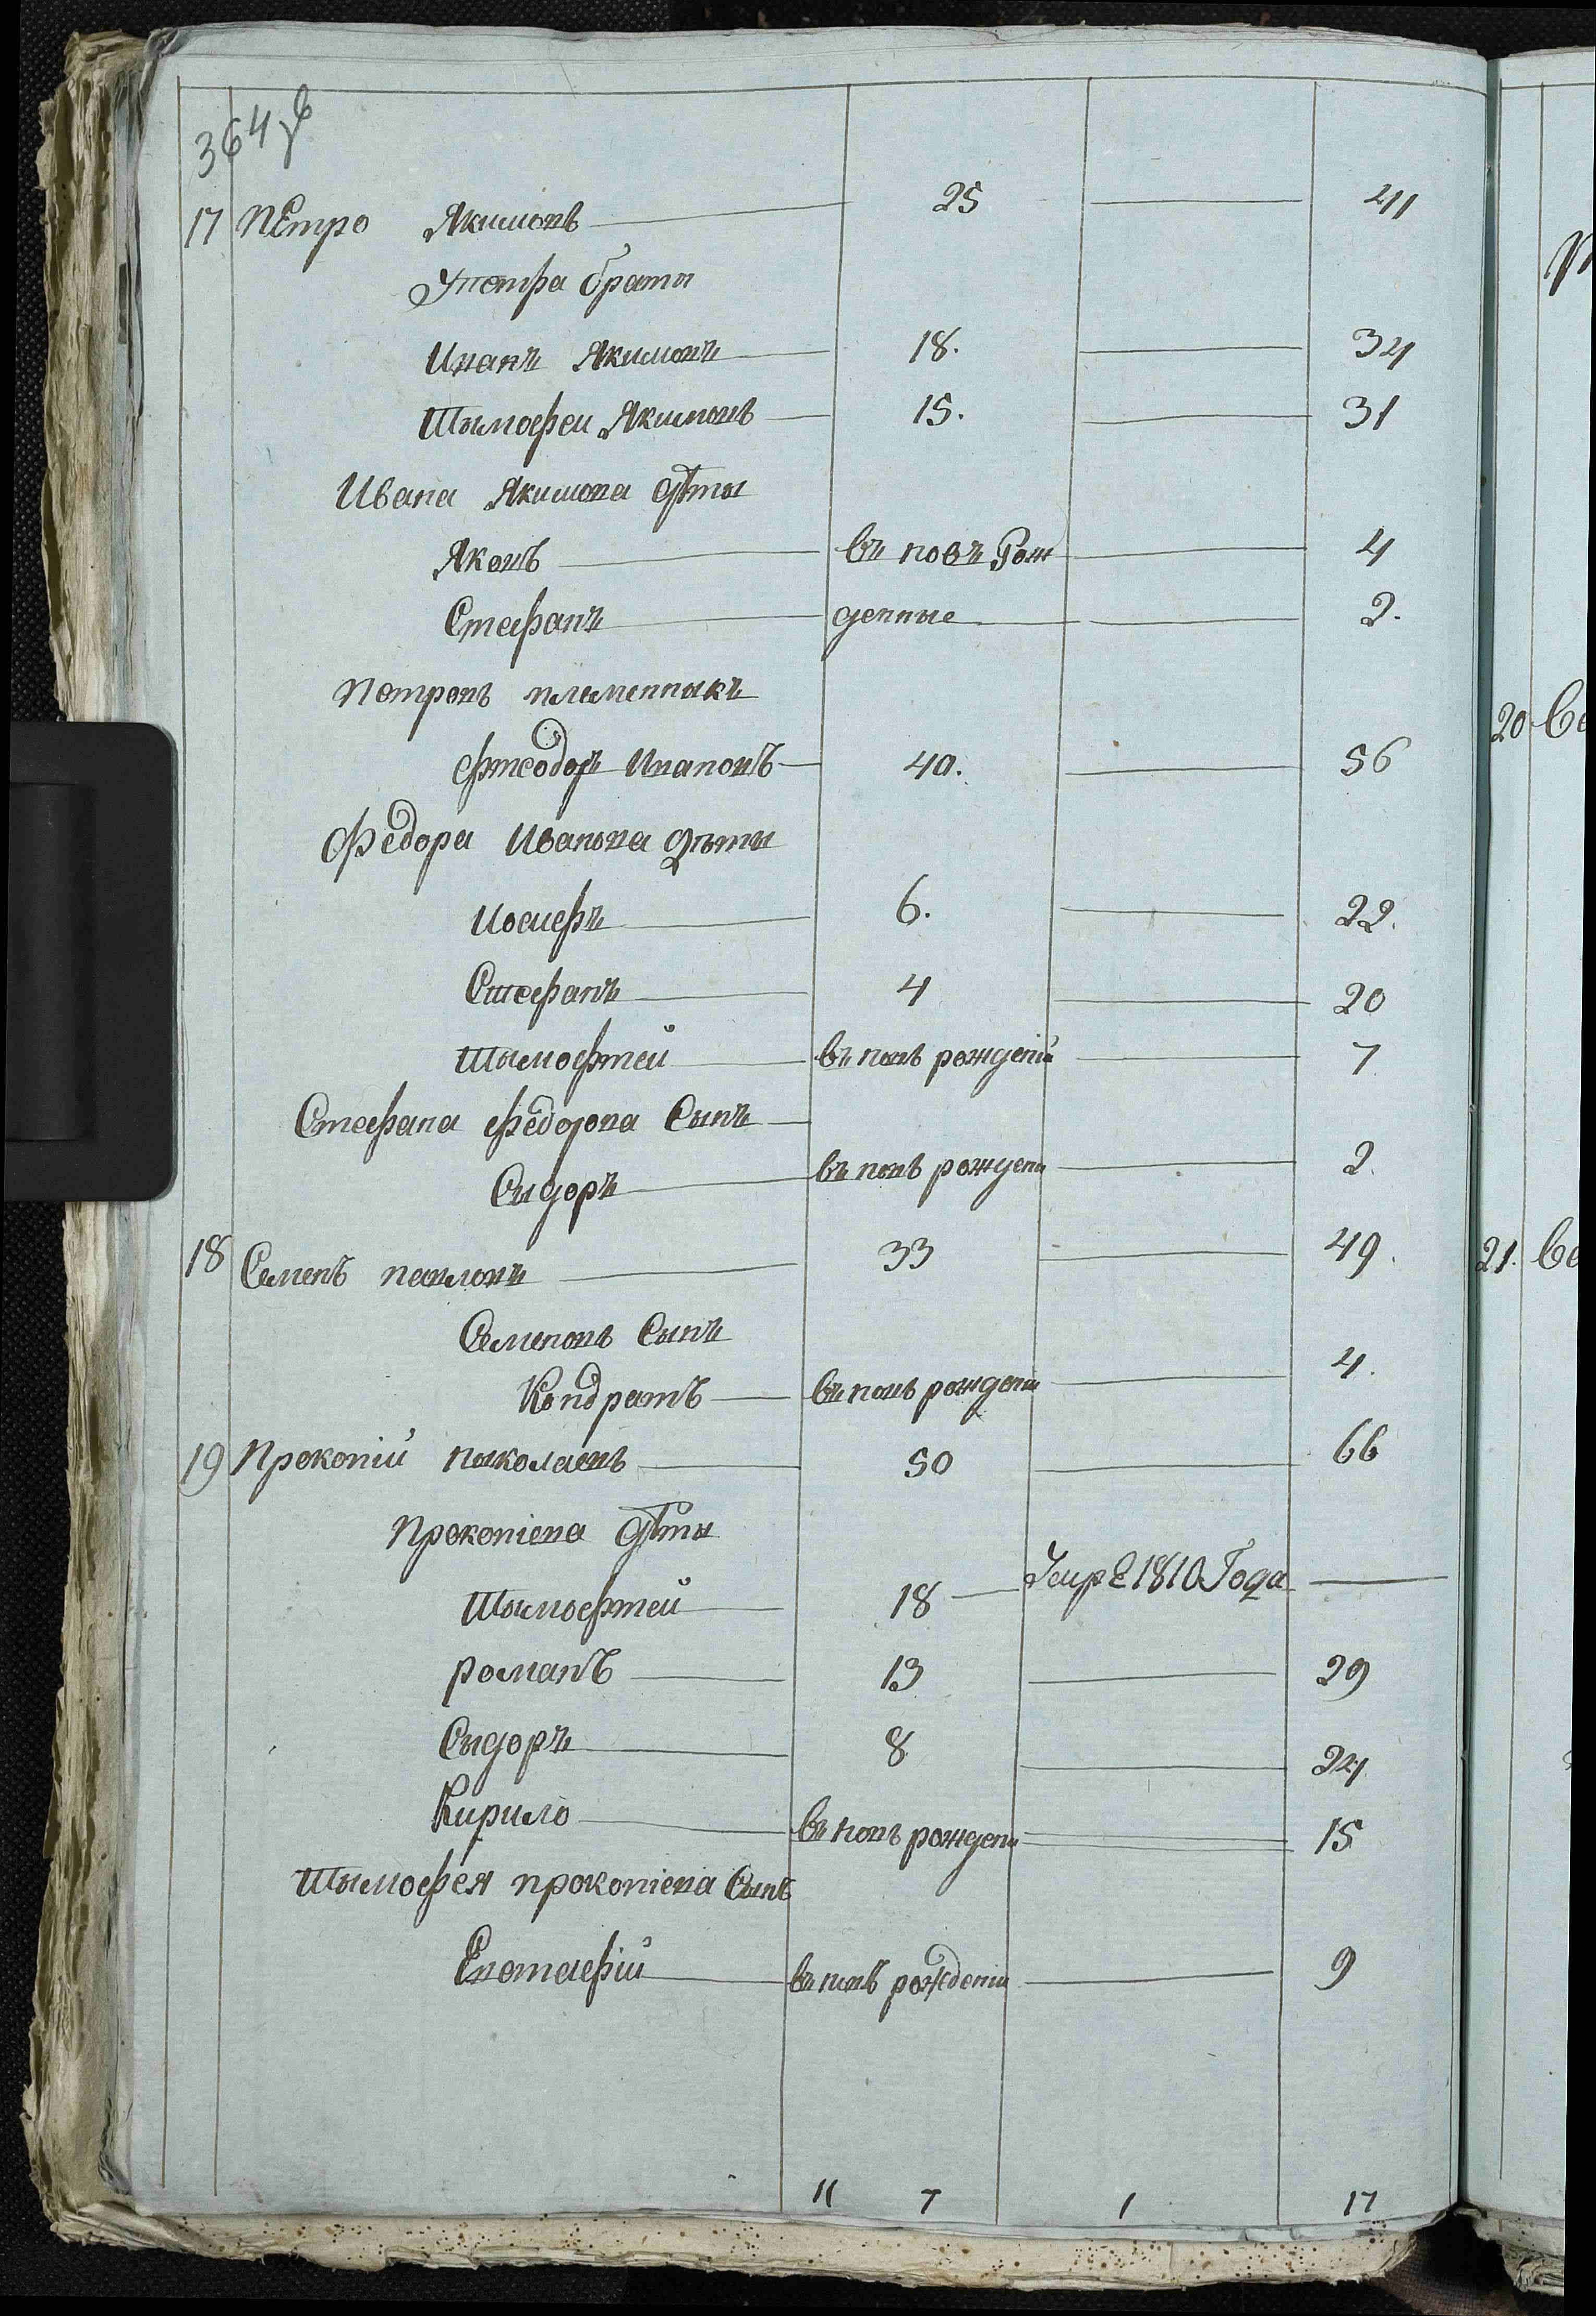 364 об
17 Петро Якимовъ — 25 — 41
У петра браты
Иванъ Якимовъ — 18. — 34
Тымофеи Якимовъ — 15. — 31
Ивана Якимова дѣты
Яковъ — въ новъ Рож — 4
Стефанъ — денные — 2.
Петровъ племенныкъ
Фтеодоръ Ивановъ — 40. — 56
Федора Иванова дѣты
Иосифъ — 6. — 22.
Стефанъ — 4 — 20
Тымофтей — въ новъ рожденій — 7
Стефана Федорова Сынъ —
Сыдоръ — въ новъ рождени — 2.
18 Семенъ павловъ — 33 — 49.
Семеновъ Сынъ
Кондратъ — въ новъ рождени — 4.
19 Прокопій Ныколаевъ — 50 — 66
Прокопіева дѣты
Тымофтей — 18 — Умре 1810 Года —
романъ — 13 — 29
Сыдоръ — 8 — 24
Кирило — въ новъ рождени — 15
Тымофея прокопіева Сынъ
Евстафій — въ новъ рождени — 9
11 7 1 17
20 Се
21. Се